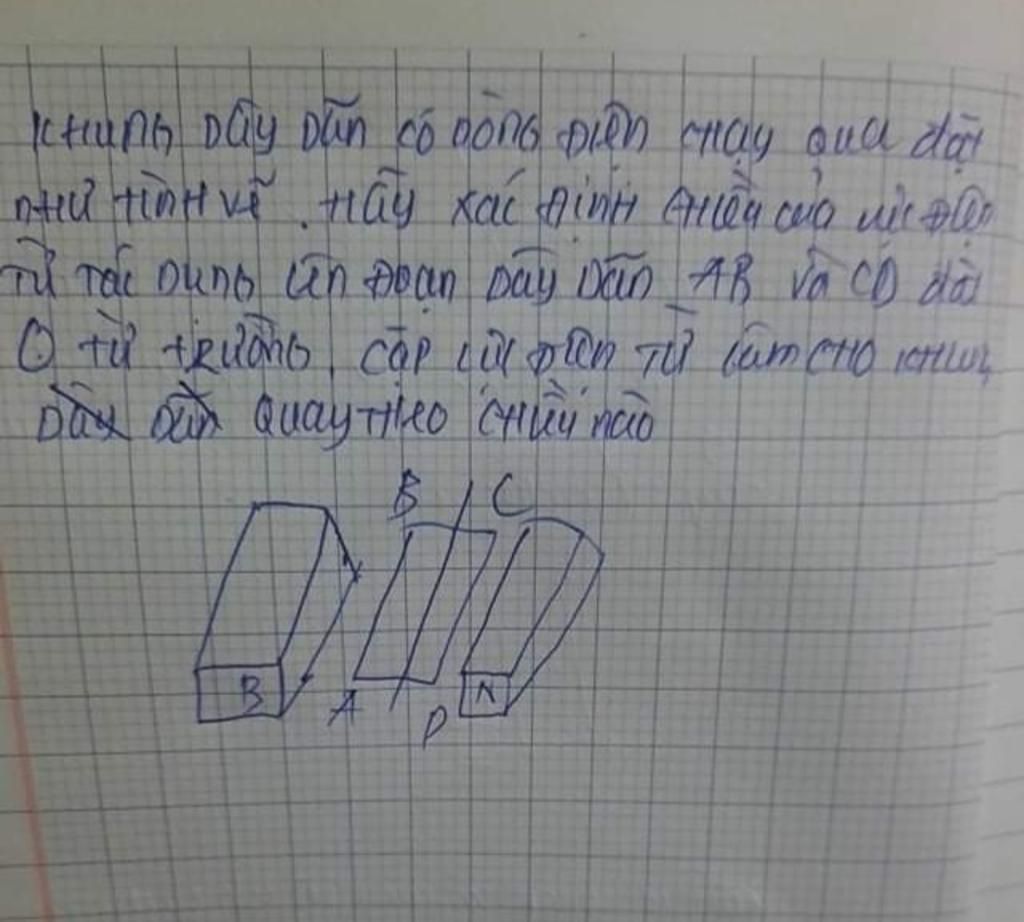 KHUNG DÂY DẪN CÓ DÒNG ĐIỆN CHẠY QUA đặt
NHƯ HÌNH VẼ. HÃY XÁC ĐỊNH CHIỀU CỦA LỰC ĐIỆN
TỪ TÁC DỤNG LÊN ĐOẠN DÂY DẪN AB và CD đặt
Ở TỪ TRƯỜNG. CẶP LỰC ĐIỆN TỪ LÀM CHO KHUNG
DÂY DẪN QUAY THEO CHIỀU NÀO
B C
B A D N